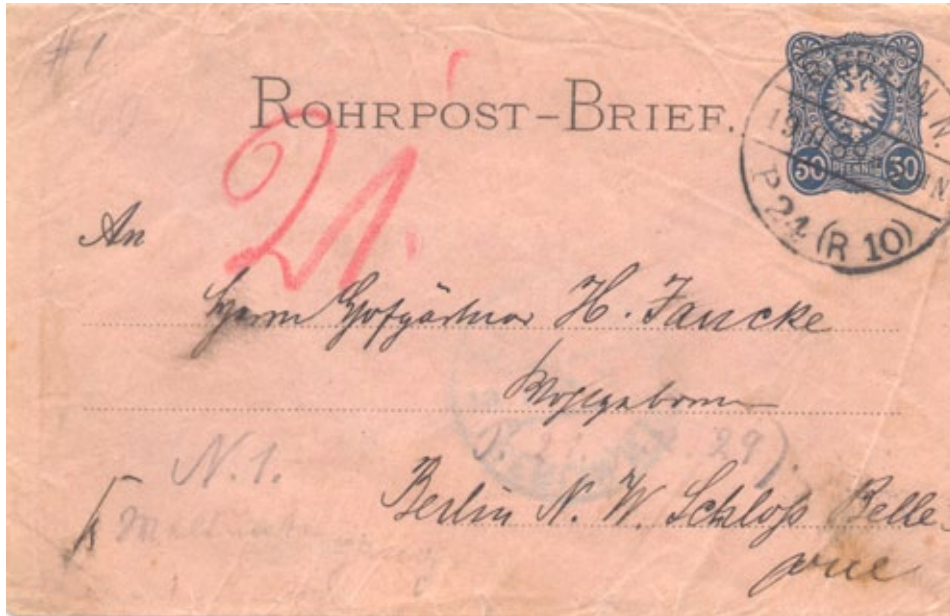 #1
ROHRPOST-BRIEF.
BERLIN, N.
50 PFENNIG 50
P 24 (R 10)
21.
An
Herrn Hofgärtner H. Jancke
Wohlgeboren
29).
N. 1.
Berlin N. W. Schloß Belle-
vue